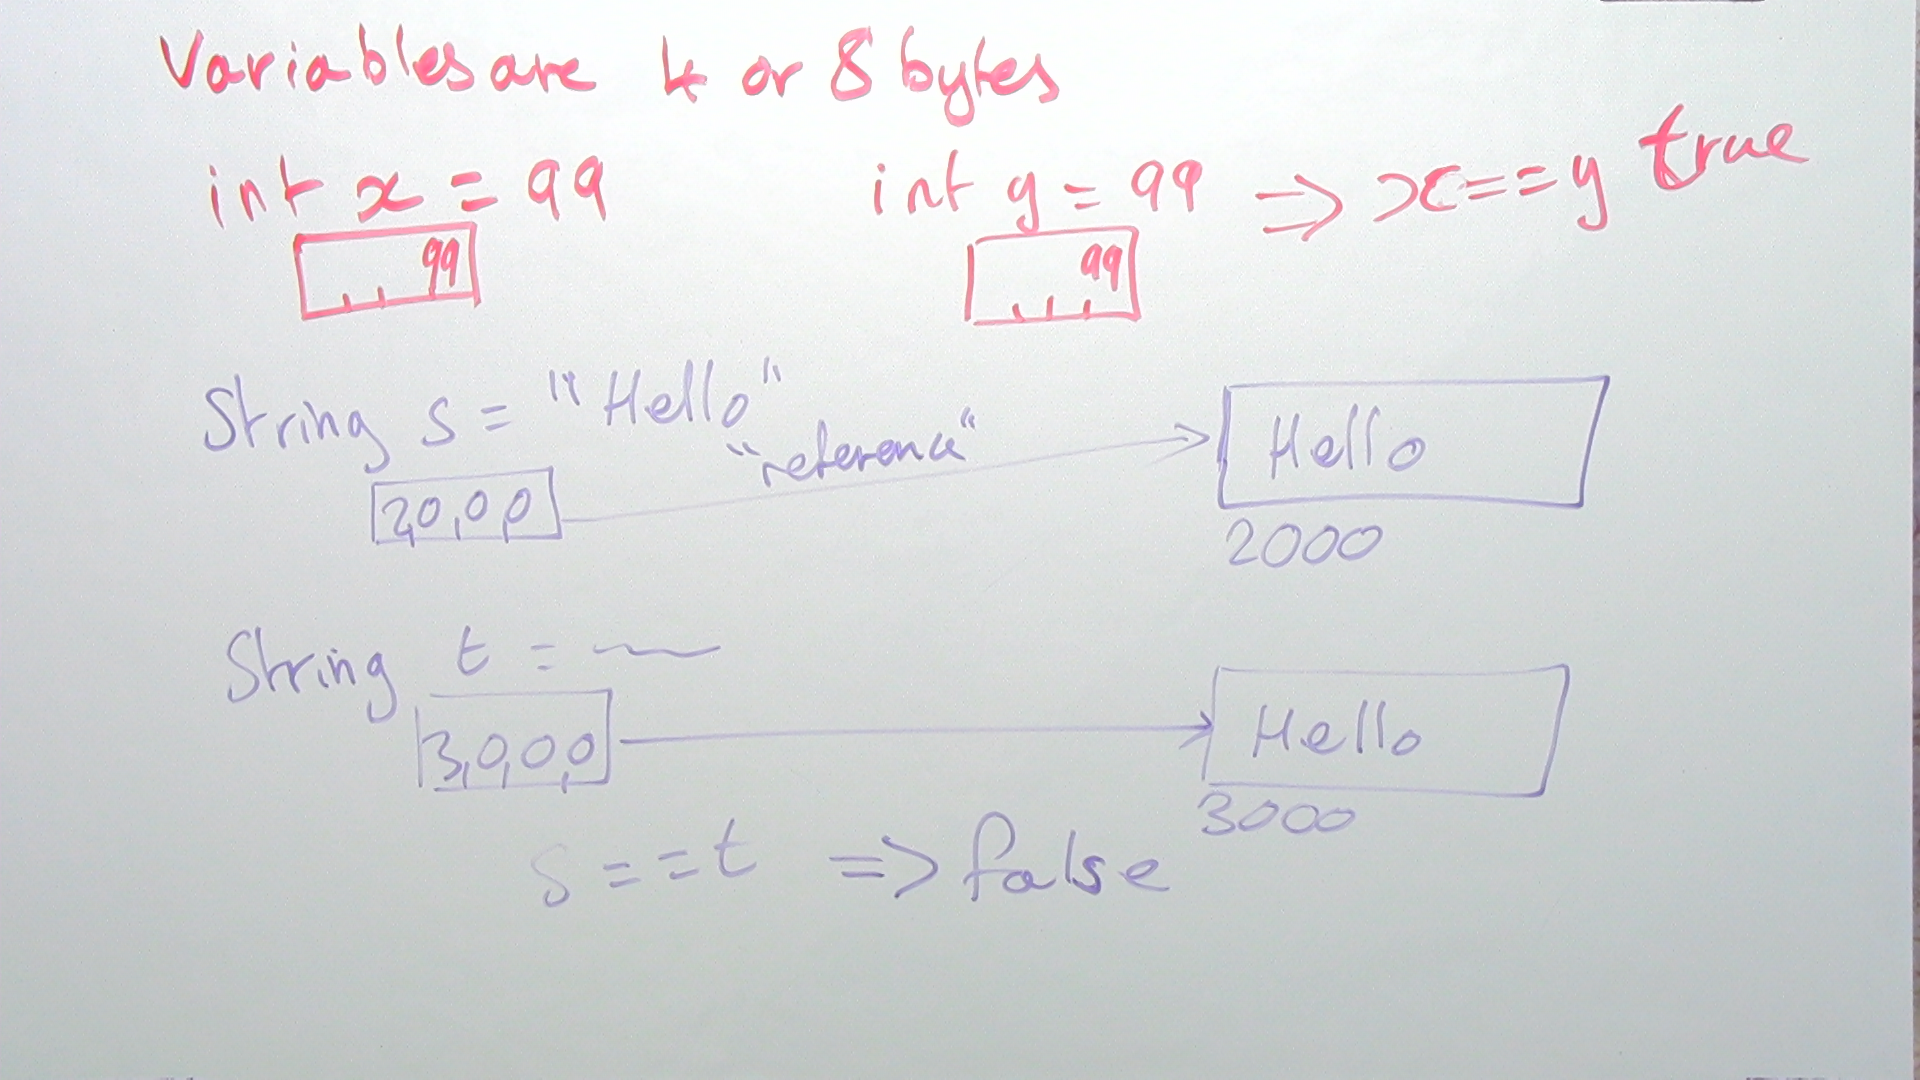 Variables are 4 or 8 bytes
int x = 99 int y = 99 => x==y true
99 99
String s = "Hello"
"reference"
Hello
2,0,0,0
2000
String t =
3,0,0,0
Hello
3000
s==t => false